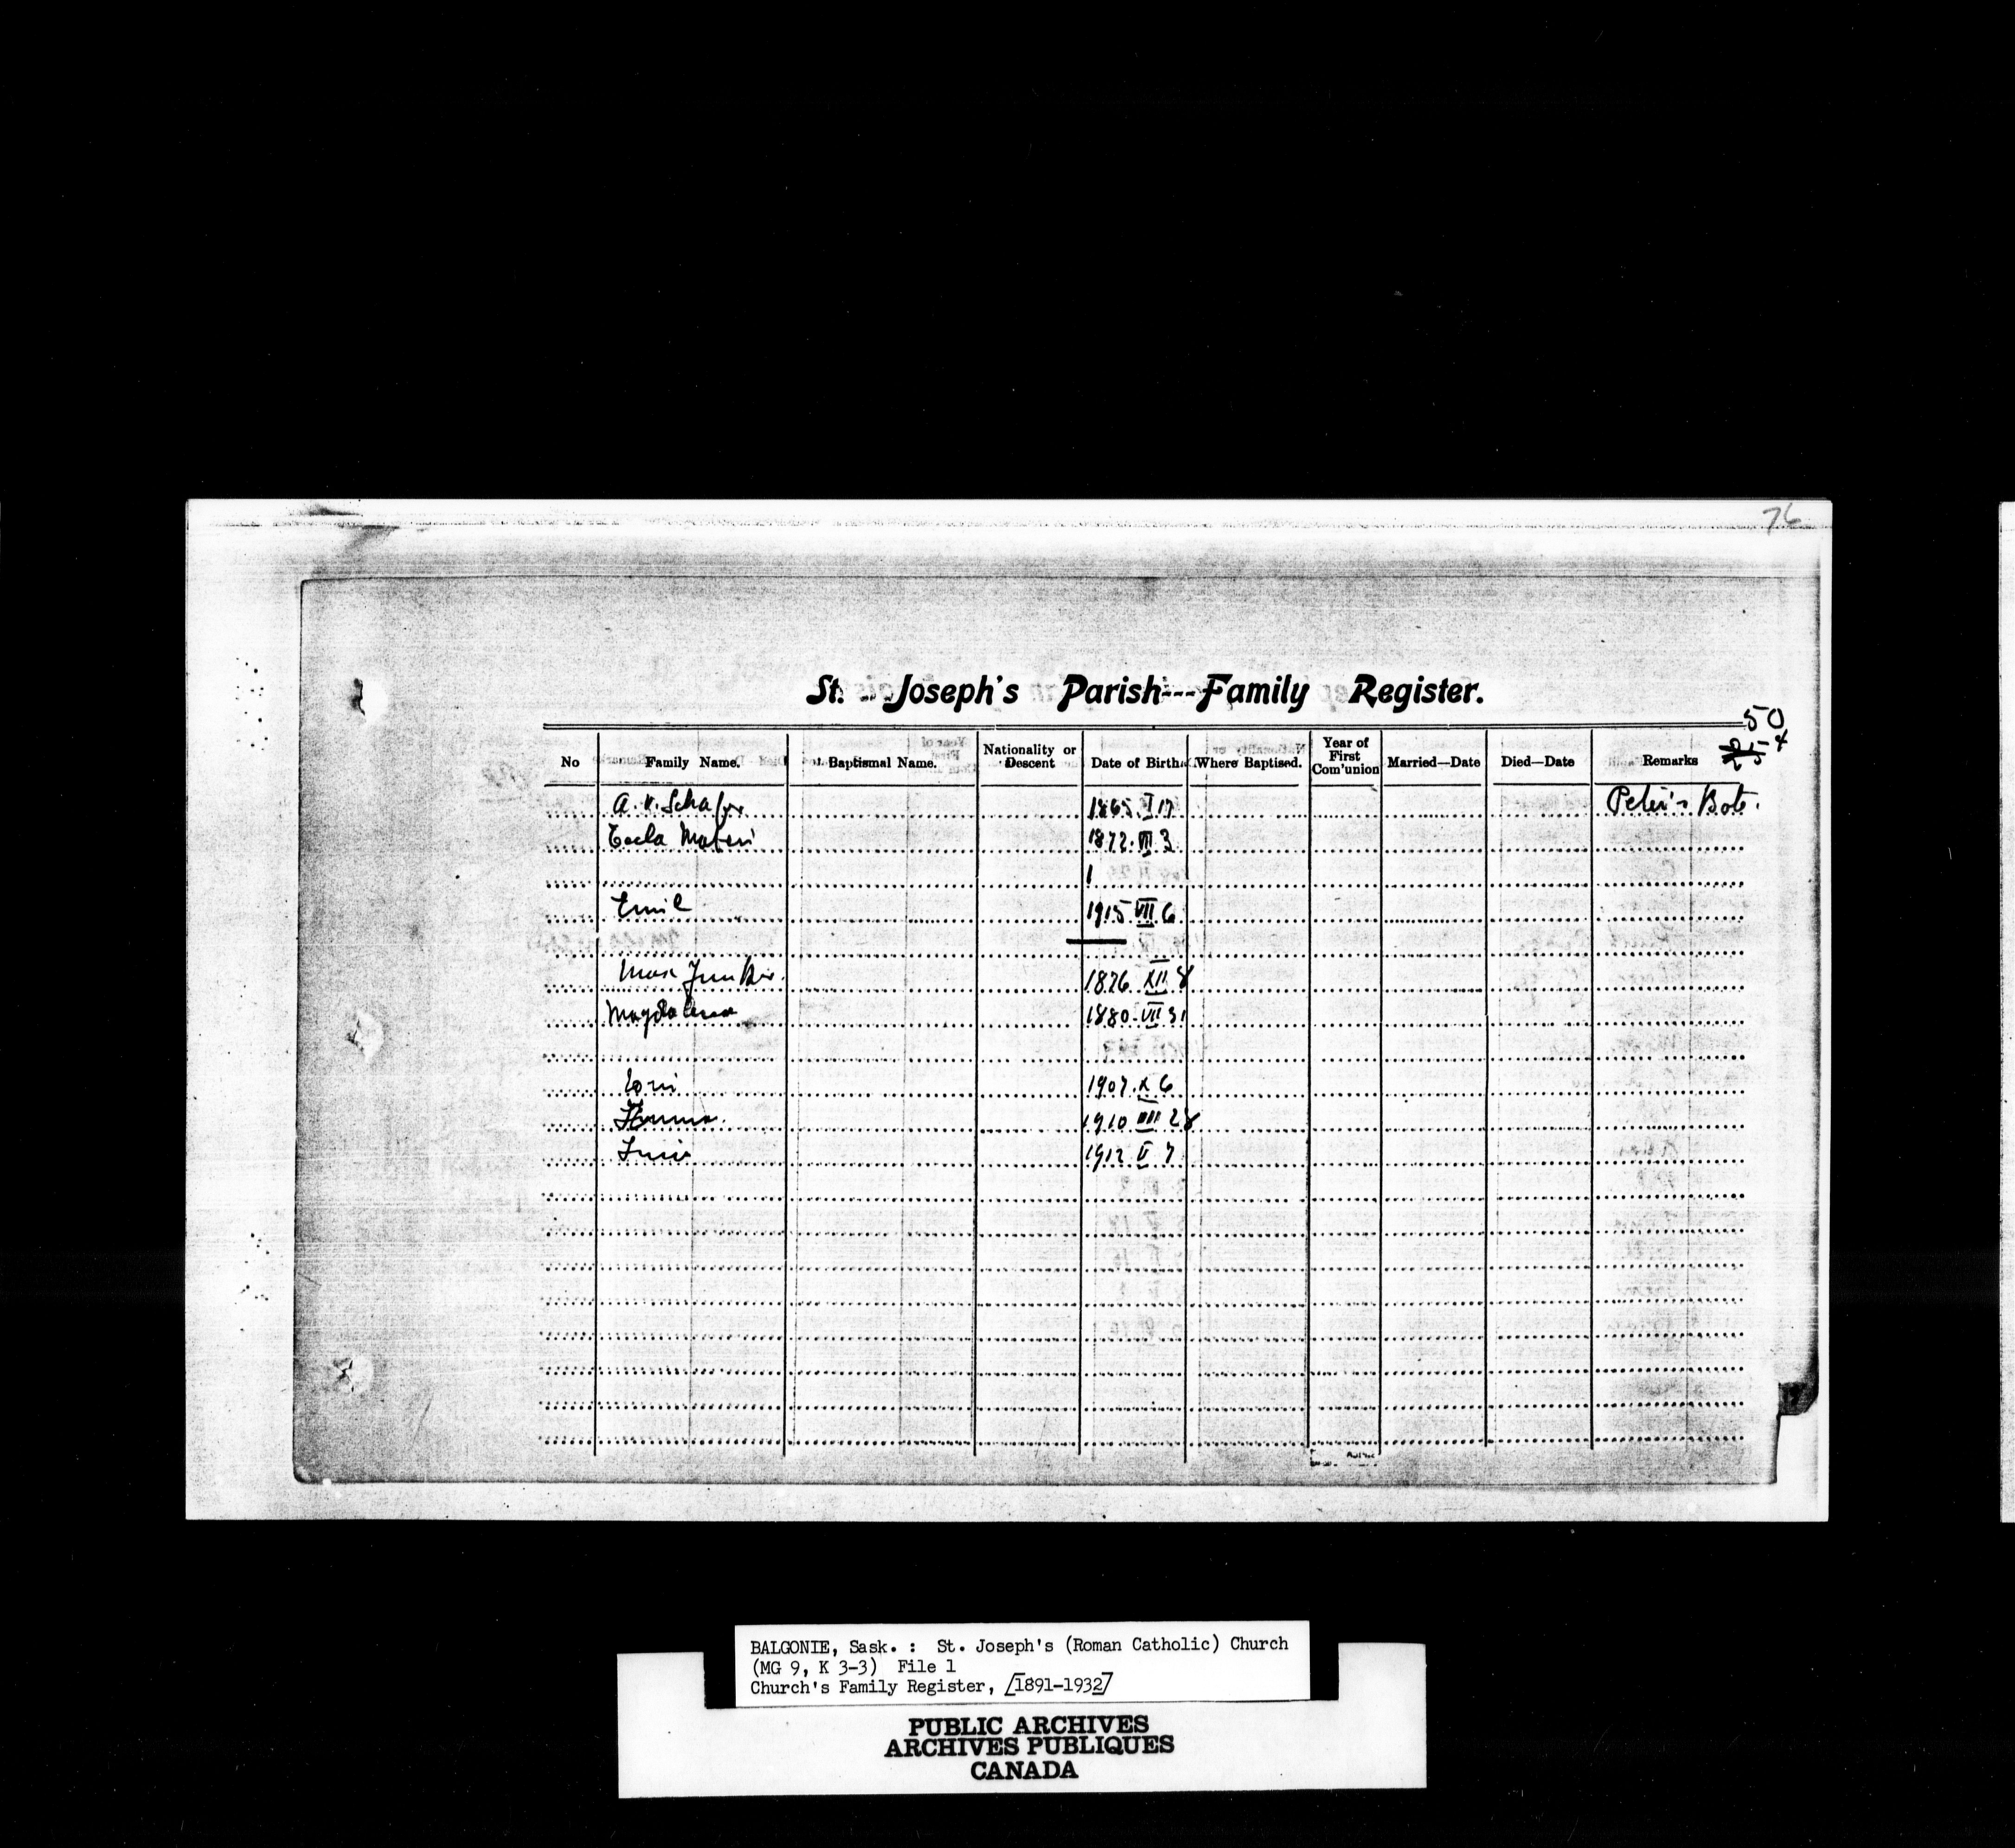 76
St. Joseph's Parish---Family Register.
50
25 4
No Family Name. Baptismal Name. Nationality or Descent Date of Birth. Where Baptised. Year of First Com'union Married—Date Died—Date Remarks
A. v. Schafer 1865 I 17 Peter's Bote.
1872 3
1
Emil 1915 VII 6
Max Junker. XII 8
Magdalena 1880 VII 31
1907 X 6
1910 VIII 28
1912 V 7
BALGONIE, Sask. : St. Joseph's (Roman Catholic) Church
(MG 9, K 3-3) File 1
Church's Family Register, [1891-1932]
PUBLIC ARCHIVES
ARCHIVES PUBLIQUES
CANADA